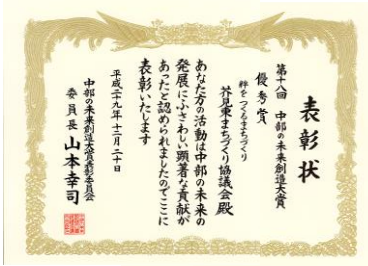 表彰状
第十八回　中部の未来創造大賞
優秀賞
絆をつくるまちづくり
芥見東まちづくり協議会殿
あなた方の活動は中部の未来の
発展にふさわしい顕著な貢献が
あったと認められましたのでここに
表彰いたします
平成二十九年十二月二十日
中部の未来創造大賞表彰委員会
委員長　山本幸司